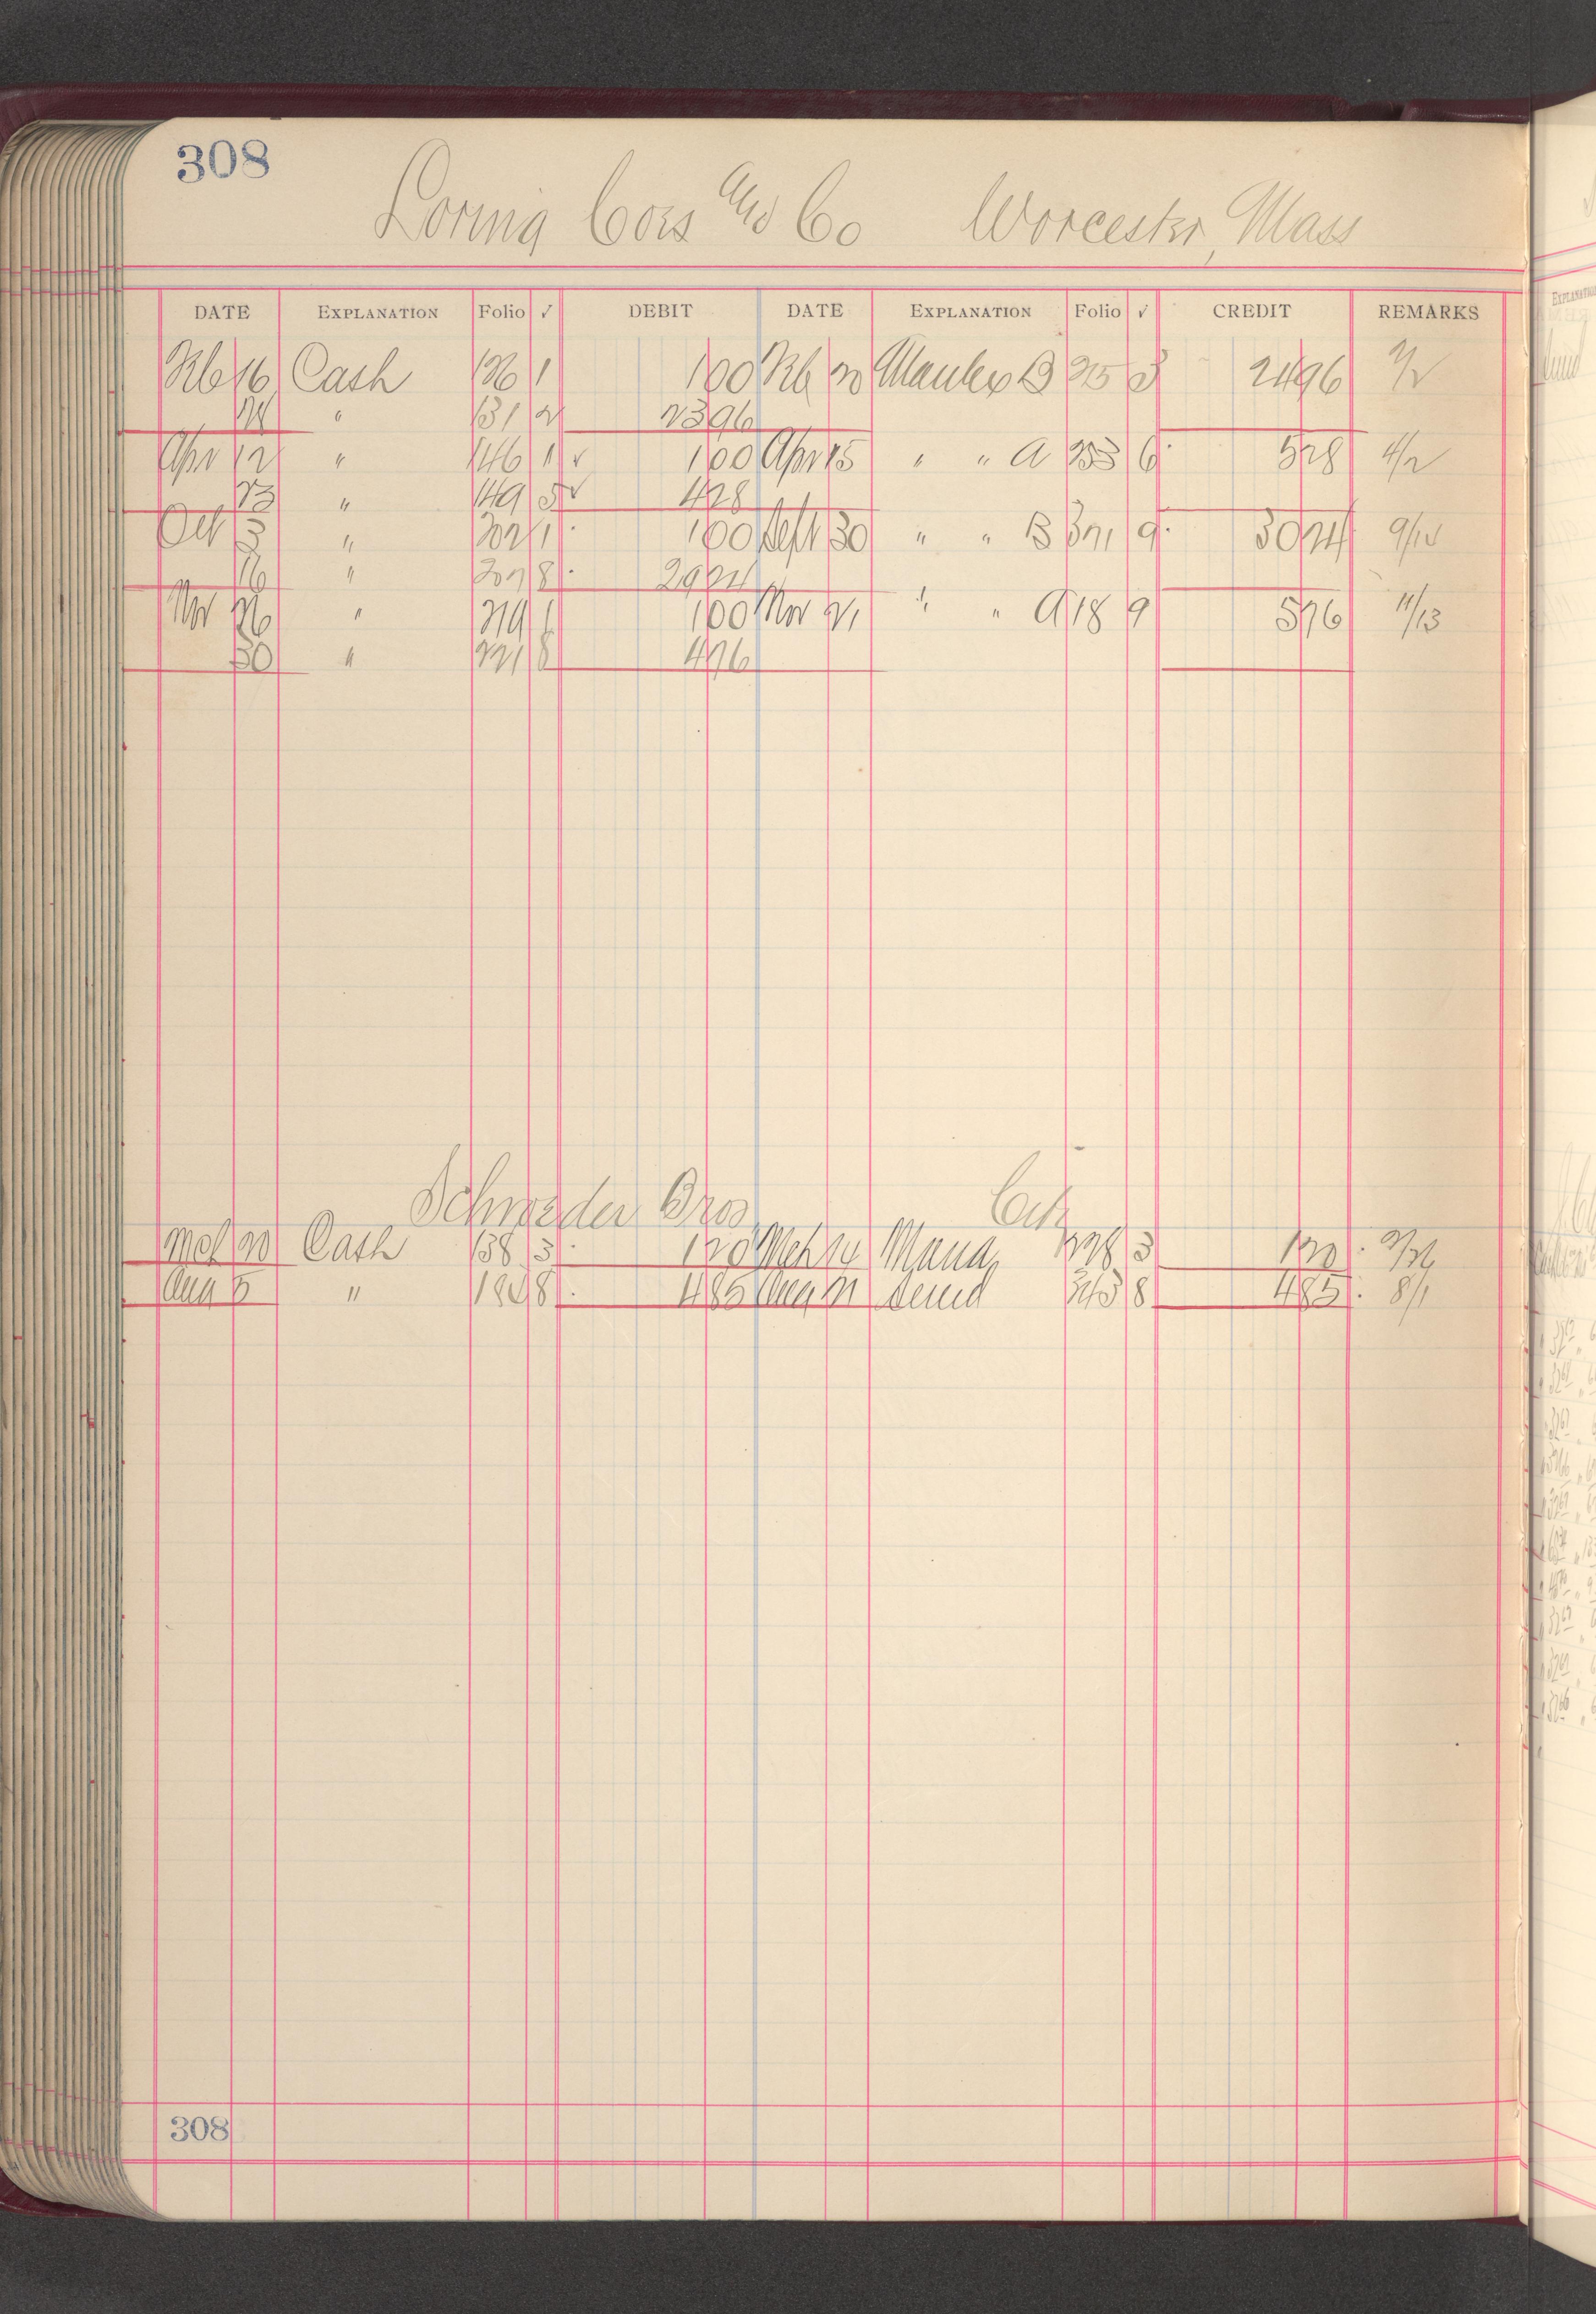 308
Loring Coes and Co Worcester, Mass
DATE EXPLANATION Folio ✓ DEBIT DATE EXPLANATION Folio ✓ CREDIT REMARKS
Feb 16 Cash 126 1 100 Feb 20 B 215 3 2496 2/2
24 " 131 2 2396
Apr 12 " 146 1 ✓ 100 Apr 15 " " A 253 6 528 4/2
23 " 149 5 ✓ 428
Oct 3 " 202 1 100 Sept 30 " " B 321 9 3024 9/10
16 " 207 8 2924
Nov 26 " 219 1 100 Nov 21 " " A 18 9 576 11/13
30 " 221 8 476
Schroeder Bros City
Mch 20 Cash 138 3 120 Mch 14 228 3 120
Aug 5 " 8 485 Aug 8 485 8/1
308